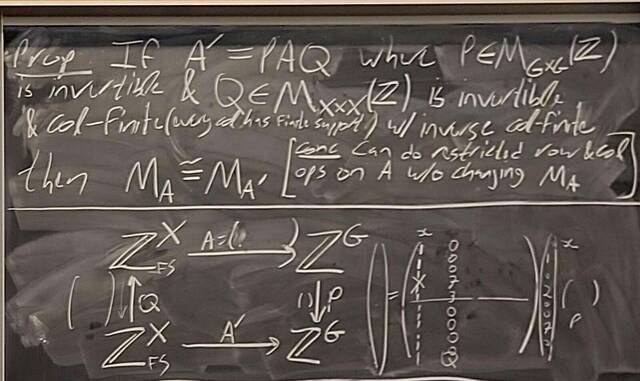 Prop. If A' = PAQ where P∈M_{G×G}(Z)
is invertible & Q∈M_{X×X}(Z) is invertible
& col-finite (every col has finite support) w/ inverse col-finite
then M_A ≅ M_A' [conc Can do restricted row & col
ops on A w/o changing M_A]
Z^X_{FS} A=(: ) → Z^G
( ) ↑Q ↓P
Z^X_{FS} A' → Z^G